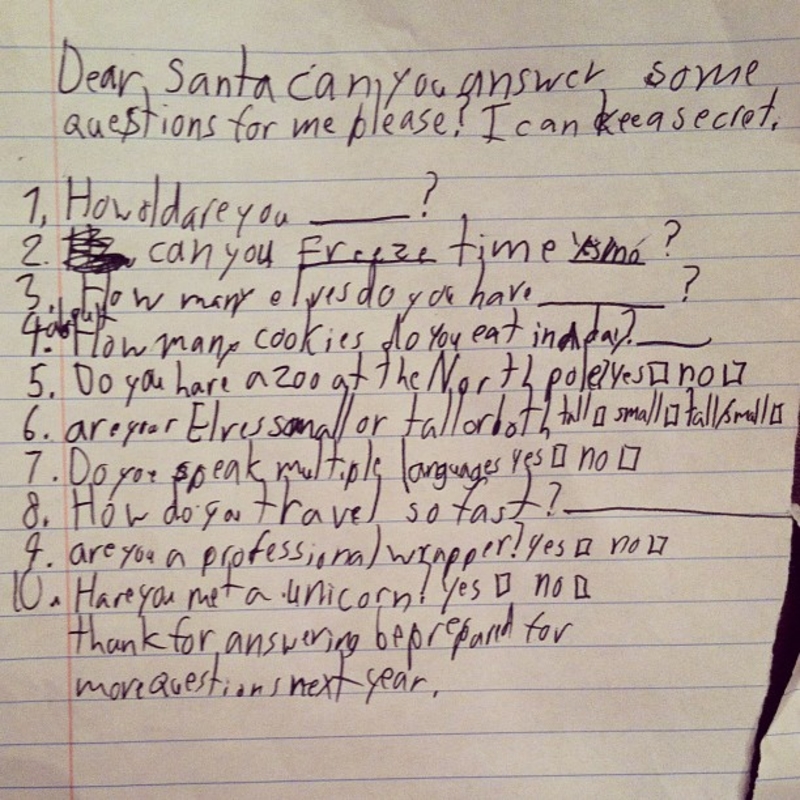 Dear, Santa can you answer some
questions for me please? I can keea secret.
1, How old are you ______ ?
2. can you Freeze time yes/no ?
3. How many elves do you have ________ ?
4. about How many cookies do you eat in a day? _____
5. Do you have a zoo at the North pole? yes☐ no☐
6. are your Elves small or tall or both tall☐ small☐ tall/small☐
7. Do you speak multiple languages yes☐ no☐
8. How do you travel so fast? ______________
9. are you a professional wrapper? yes☐ no☐
10. Have you met a unicorn? yes☐ no☐
thank for answering be prepard for
more questions next year.